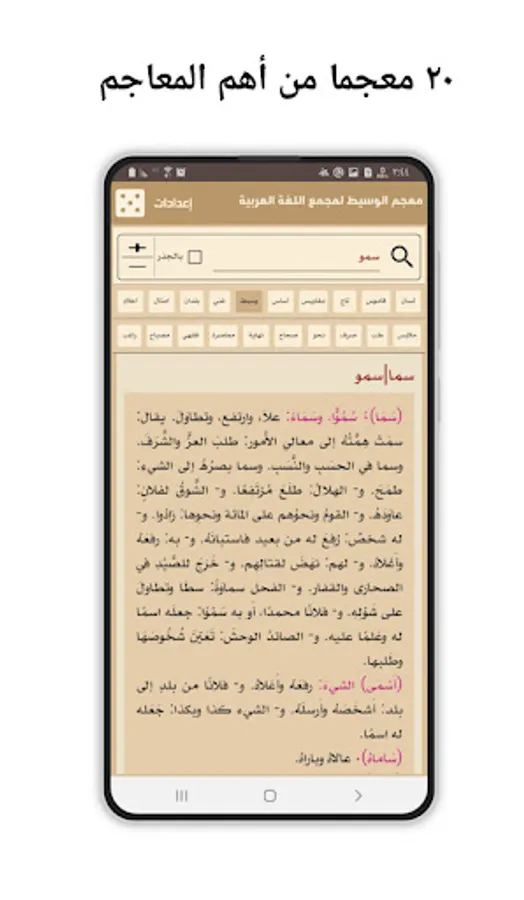 ٢٠ معجما من أهم المعاجم
٢:٤٤
معجم الوسيط لمجمع اللغة العربية
إعدادات
سمو
بالجذر
لسان قاموس تاج مقاييس أساس وسيط غني بلدان أمثال أعلام
ملابس طب صرف نحو صحاح نهاية معاصرة فقهي مصباح راغب
سما|سمو
(سَمَا): سُمُوًّا، وسَمَاءً: علَا، وارتفع، وتطاولَ. يقال:
سمَتْ هِمَّتُهُ إلى معالي الأمور: طلبَ العزَّ والشَّرَفَ.
وسما في الحسَبِ والنَّسَبِ. وسما بصرُهُ إلى الشيءِ:
طمَحَ. و- الهلالُ: طلَعَ مُرْتَفِعًا. و- الشَّوقُ لفلانٍ:
عاوَدَهُ. و- القومُ ونحوُهم على المائة ونحوها: زادُوا. و-
له شخصٌ: رُفِعَ له من بعيد فاستبانَه. و- به: رفعَهُ
وأَعْلَاهُ. و- لهم: نهَضَ لقتالِهم. و- خَرَجَ للصَّيْدِ في
الصحارَى والقفار. و- الفحل سماوَةً: سطا وتطاولَ
على شَوْلِهِ. و- فلانًا محمدًا، أو به سَمْوًا: جعلَه اسمًا
له وعَلَمًا عليه. و- الصائدُ الوحشَ: تَعَيَّنَ شُخُوصَهَا
وطَلبها.
(أَسْمَى) الشيءَ: رفعَهُ وأَعْلَاهُ. و- فلانًا من بلدٍ إلى
بلد: أشخَصَهُ وأرسلَه. و- الشيء كذا وبكذا: جَعلَه
له اسمًا.
(سَامَاهُ): عالاهُ وباراهُ.